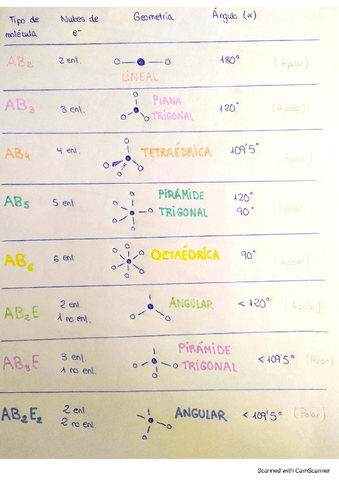 Tipo de molécula Nubes de e⁻ Geometría Ángulo (α)
AB₂ 2 enl. LINEAL 180° (Apolar)
AB₃ 3 enl. PLANA TRIGONAL 120° (Apolar)
AB₄ 4 enl. TETRAÉDRICA 109'5° Apolar)
AB₅ 5 enl PIRÁMIDE TRIGONAL 120° 90° (Apolar)
AB₆ 6 enl OCTAÉDRICA 90° (Apolar)
AB₂E 2 enl. 1 no enl. ANGULAR < 120°
AB₃E 3 enl. 1 no enl. PIRÁMIDE TRIGONAL < 109'5° (Polar)
AB₂E₂ 2 enl 2 no enl. ANGULAR < 109'5° (Polar)
Scanned with CamScanner